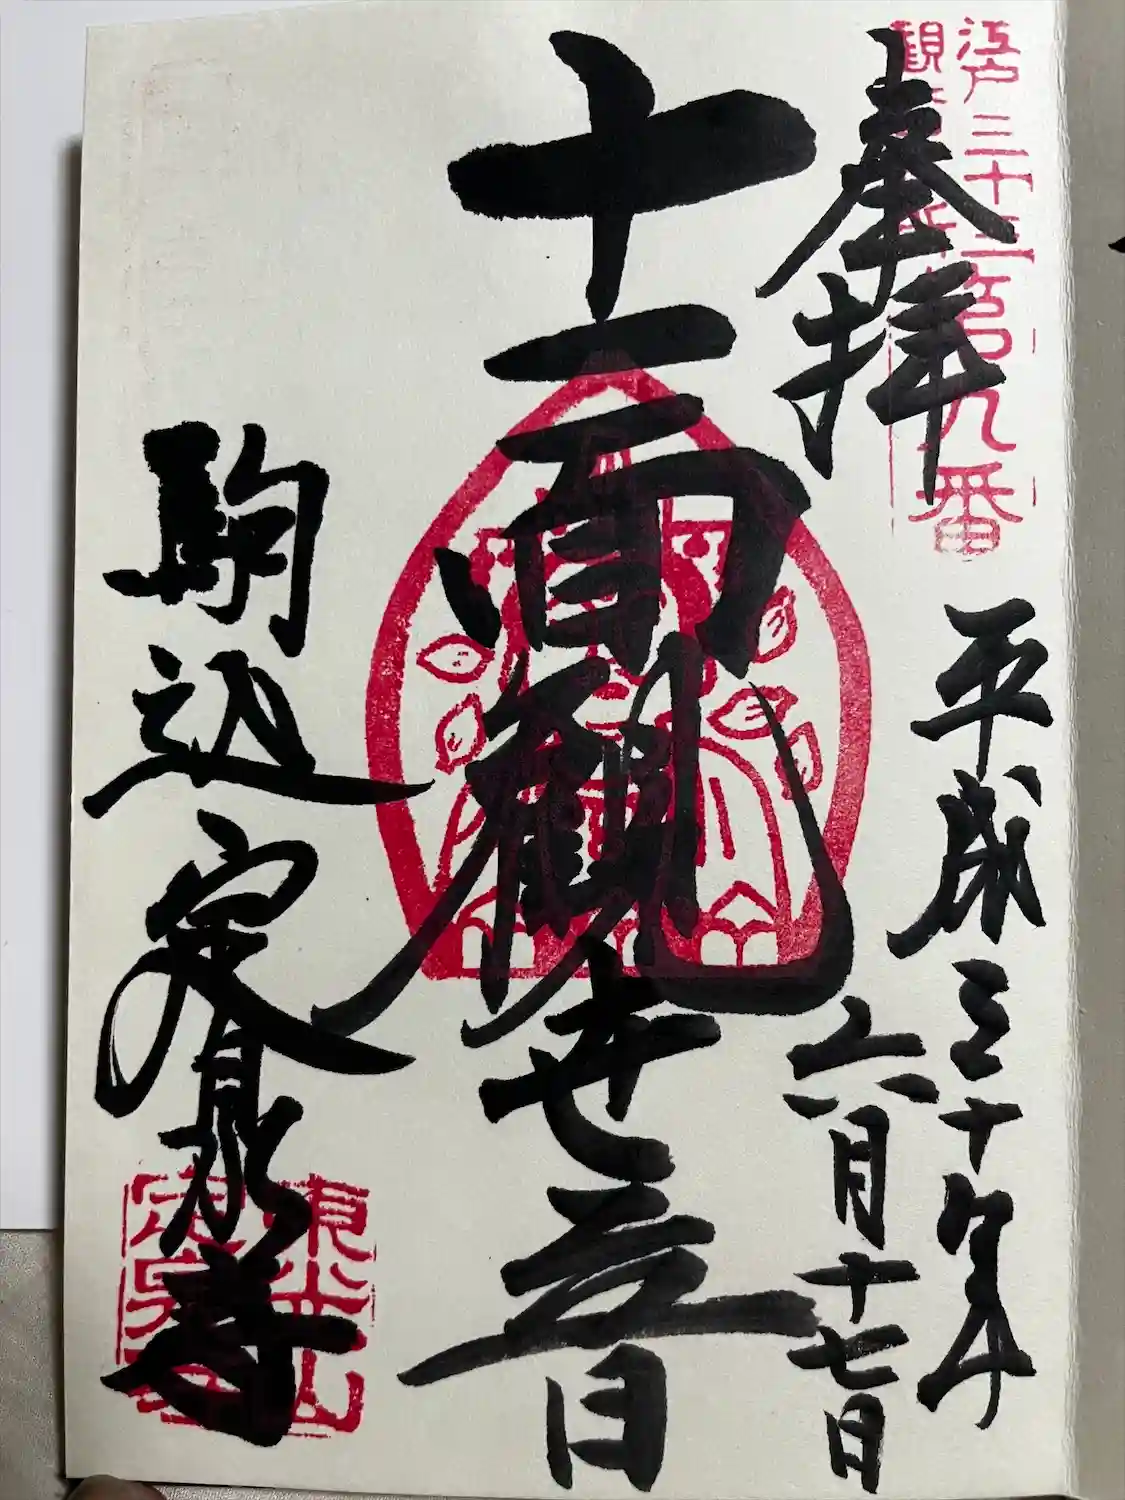 江戸三十三
観
九番
奉拝
平成三十年
六月十七日
十一面観世音
駒込定泉寺
東光山
定泉寺